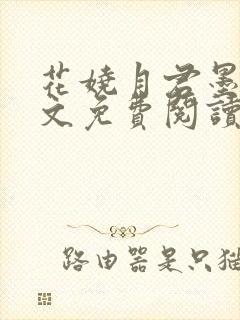 花嬈月君墨
文免費閱讀
路由器是只猫